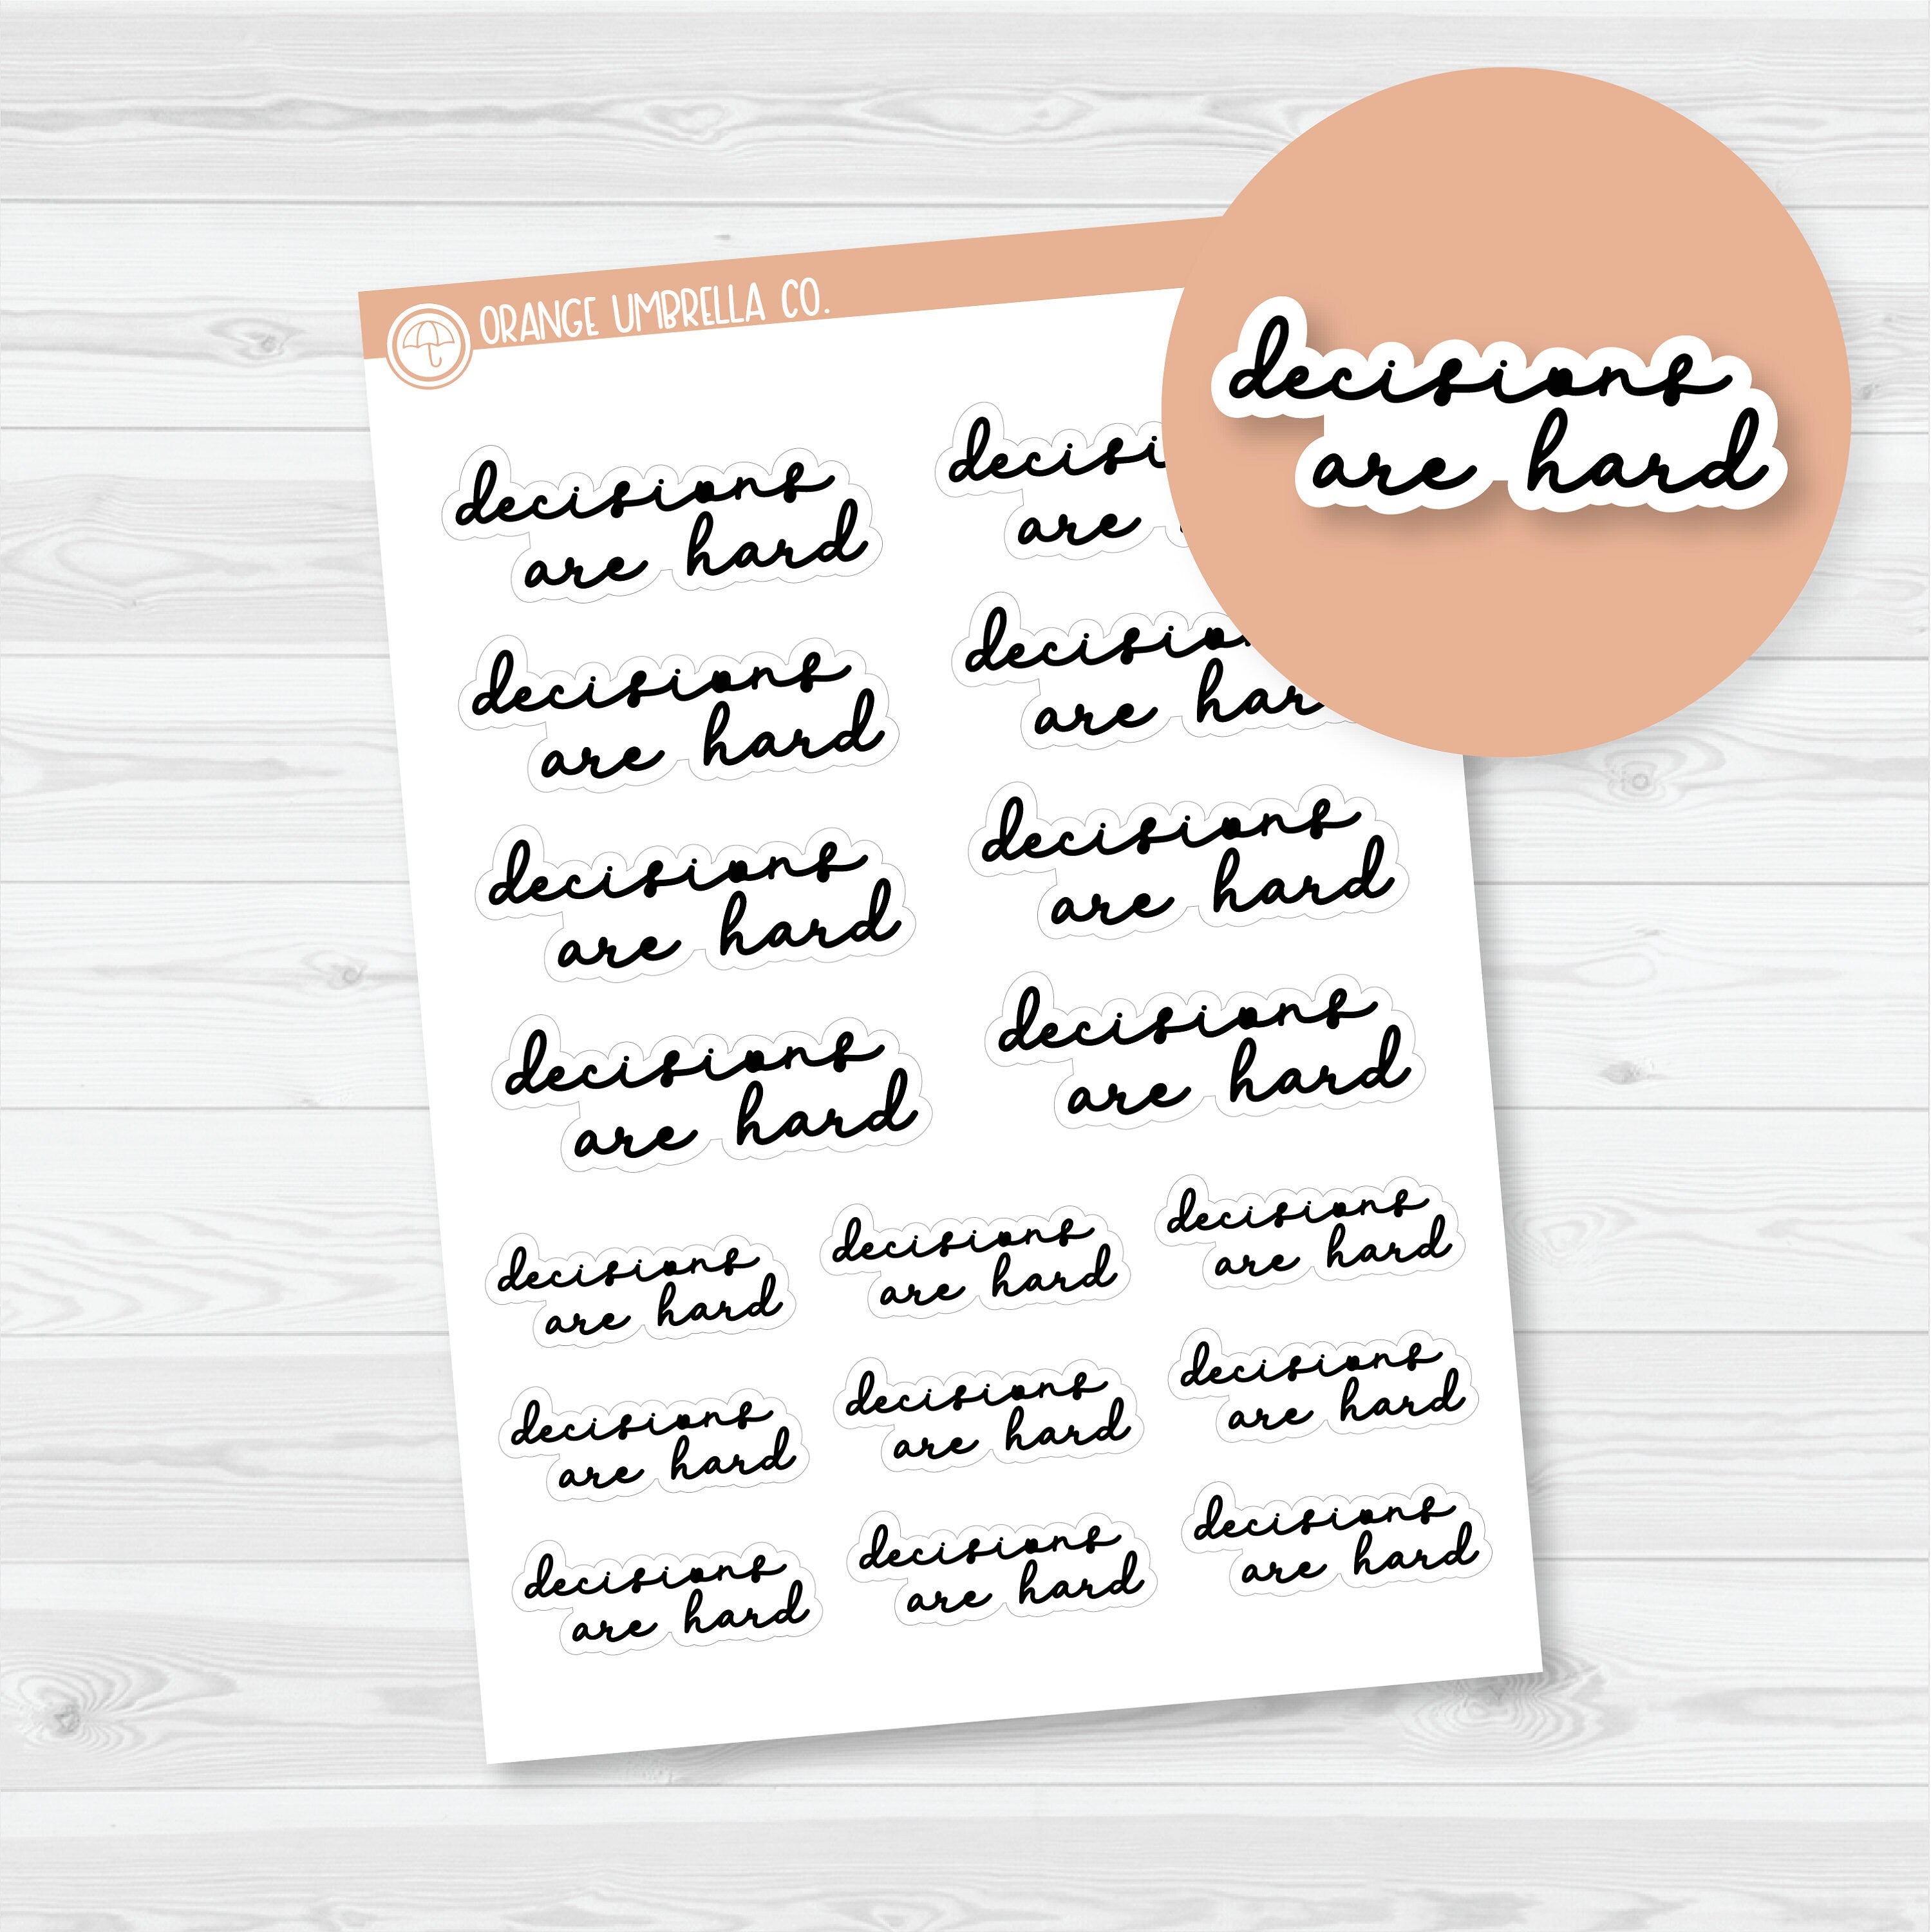 ORANGE UMBRELLA CO.
decisions
are hard
decisions
are hard
decisi
are
decisions
are hard
decisions
are har
decisions
are hard
decisions
are hard
decisions
are hard
decisions
are hard
decisions
are hard
decisions
are hard
decisions
are hard
decisions
are hard
decisions
are hard
decisions
are hard
decisions
are hard
decisions
are hard
decisions
are hard